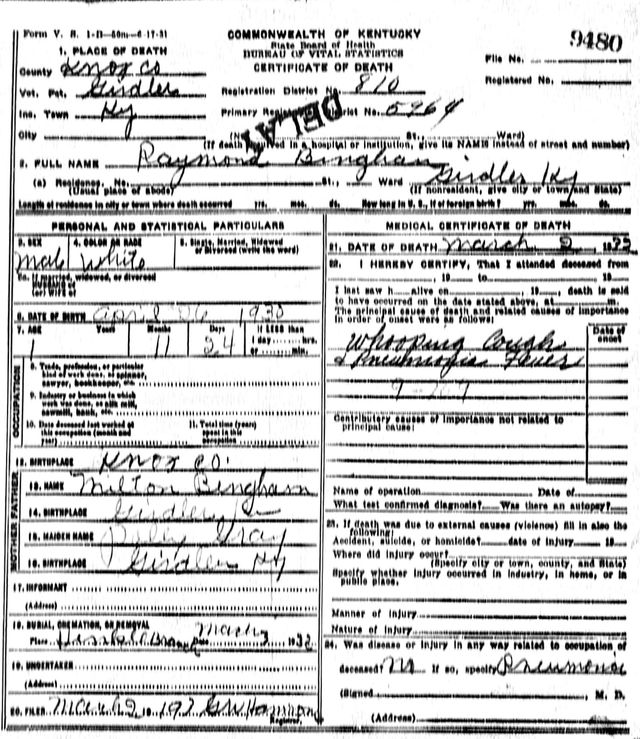 Form V. S. 1-D-50m-6-17-31
COMMONWEALTH OF KENTUCKY
State Board of Health
BUREAU OF VITAL STATISTICS
CERTIFICATE OF DEATH
9480
File No.
Registered No.
1. PLACE OF DEATH
County Knox Co
Vot. Pct. Girdler
Inc. Town Ky
City
Registration District No. 810
Primary Registration District No. 5964
DELAY
(No. St., Ward)
(If death occurred in a hospital or institution, give its NAME instead of street and number)
2. FULL NAME Raymond Bingham
(a) Residence. No. St., Ward Girdler Ky
(Usual place of abode) (If nonresident, give city or town and State)
Length of residence in city or town where death occurred yrs. mos. ds. How long in U. S., if of foreign birth? yrs. mos. ds.
PERSONAL AND STATISTICAL PARTICULARS
3. SEX Male
4. COLOR OR RACE White
5. Single, Married, Widowed or Divorced (write the word)
5a. If married, widowed, or divorced
HUSBAND of
(or) WIFE of
6. DATE OF BIRTH April 26 1930
7. AGE Years Months Days If LESS than
1 11 24 1 day hrs.
or min.
8. Trade, profession, or particular
kind of work done, as spinner,
sawyer, bookkeeper, etc.
9. Industry or business in which
work was done, as silk mill,
sawmill, bank, etc.
10. Date deceased last worked at
this occupation (month and
year)
11. Total time (years)
spent in this
occupation
OCCUPATION
12. BIRTHPLACE Knox Co.
FATHER
13. NAME Milton Bingham
14. BIRTHPLACE Girdler, Ky
MOTHER
15. MAIDEN NAME Gray
16. BIRTHPLACE Girdler Ky
17. INFORMANT
(Address)
18. BURIAL, CREMATION, OR REMOVAL
Place Branch Date Mach 3 1932
19. UNDERTAKER
(Address)
20. FILED March 2, 19 G W Hammons
Registrar.
MEDICAL CERTIFICATE OF DEATH
21. DATE OF DEATH March 2, 1932
22. I HEREBY CERTIFY, That I attended deceased from
19 to 19
I last saw h alive on 19 death is said
to have occurred on the date stated above, at m.
The principal cause of death and related causes of importance
in order of onset were as follows:
Date of onset
Whooping Cough
& Pneumonia Fever
9-
Contributory causes of importance not related to
principal cause:
Name of operation Date of
What test confirmed diagnosis? Was there an autopsy?
23. If death was due to external causes (violence) fill in also the
following:
Accident, suicide, or homicide? date of injury 19
Where did injury occur?
(Specify city or town, county, and State)
Specify whether injury occurred in industry, in home, or in
public place.
Manner of Injury
Nature of Injury
24. Was disease or injury in any way related to occupation of
deceased? No If so, specify Pneumonia
(Signed) M. D.
(Address)